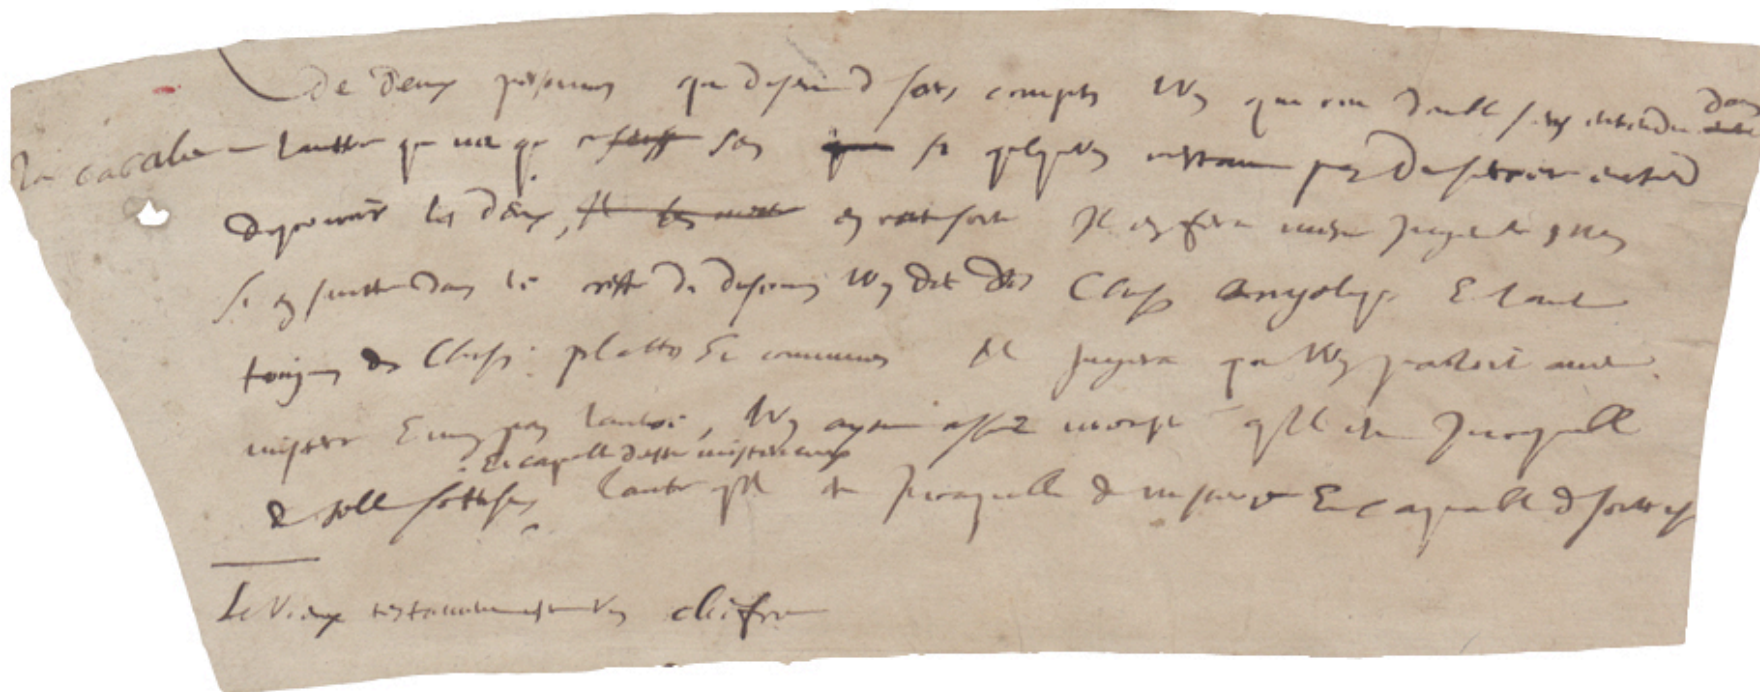 De deux personnes qui disent de sots comptes l'un qui a un double sens entendu dans
la cabale l'autre qui n'a que ce sens si quelqu'un n'estant pas du secret entend
discourir les deux, en cette sorte Il en fera mesme jugement mais
si en suitte dans le reste du discours l'un dit des choses angeliques Et l'autre
tousjours des choses plattes Et communes Il jugera que l'un parloit avec
mistere Et non pas l'autre, l'un ayant assez montré qu'il est incapable
de telle sottise, Et capable d'estre misterieux l'autre qu'il est incapable de mistere Et capable de sottise
Le Vieux testament est un chifre